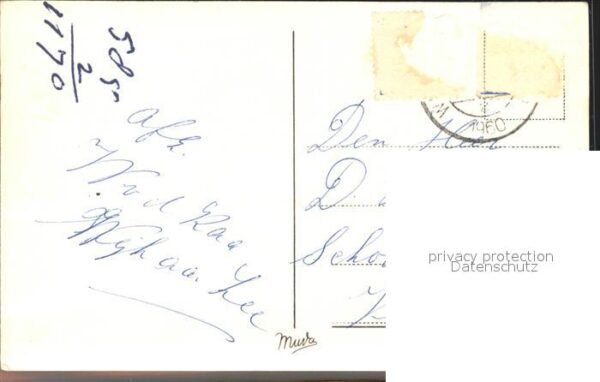 58 50
2
1170
Afz.
Wijk aan Zee
1960
Den Heer
D
Scho
Muva
privacy protection
Datenschutz